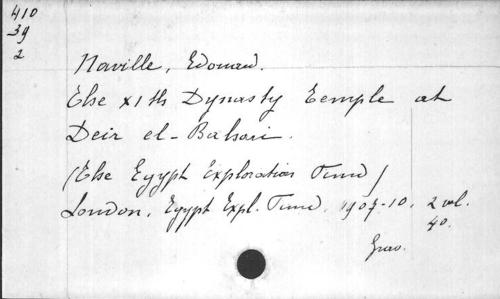 410
39
2
Naville, Edouard.
The XIth Dynasty Temple at
Deir el-Bahari.
(The Egypt Exploration Fund)
London, Egypt Expl. Fund, 1907-10. 2 vol.
4o.